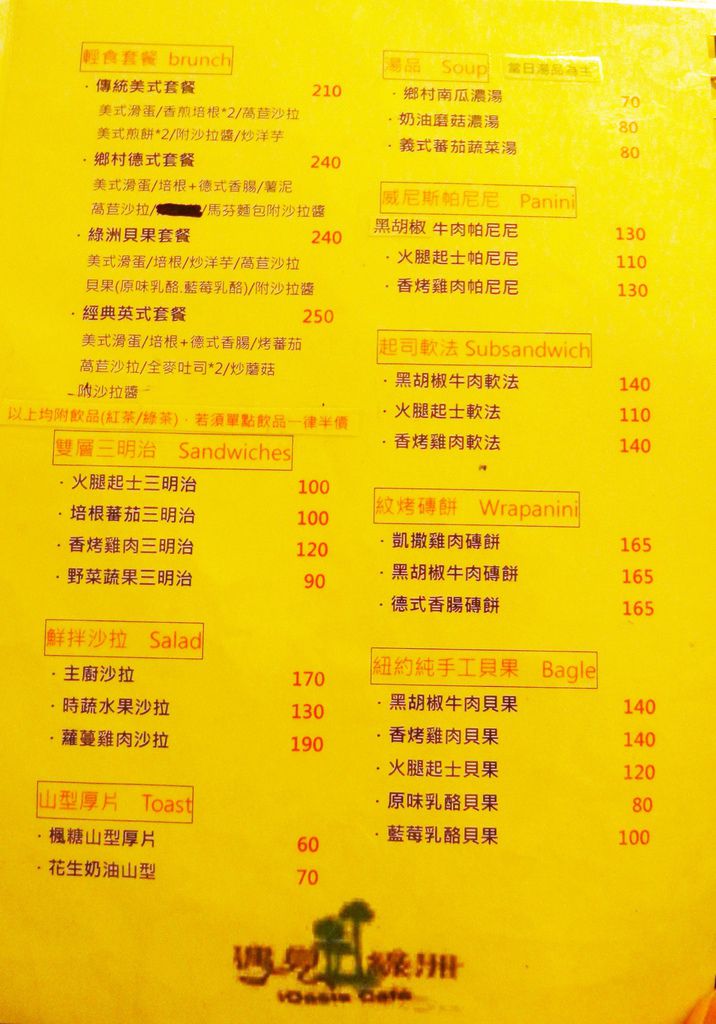 輕食套餐 brunch
· 傳統美式套餐 210
美式滑蛋/香煎培根*2/萵苣沙拉
美式煎餅*2/附沙拉醬/炒洋芋
· 鄉村德式套餐 240
美式滑蛋/培根+德式香腸/薯泥
萵苣沙拉/ /馬芬麵包附沙拉醬
· 綠洲貝果套餐 240
美式滑蛋/培根/炒洋芋/萵苣沙拉
貝果(原味乳酪.藍莓乳酪)/附沙拉醬
· 經典英式套餐 250
美式滑蛋/培根+德式香腸/烤蕃茄
萵苣沙拉/全麥吐司*2/炒蘑菇
附沙拉醬
以上均附飲品(紅茶/綠茶)﹐若須單點飲品一律半價
雙層三明治 Sandwiches
· 火腿起士三明治 100
· 培根蕃茄三明治 100
· 香烤雞肉三明治 120
· 野菜蔬果三明治 90
鮮拌沙拉 Salad
· 主廚沙拉 170
· 時蔬水果沙拉 130
· 蘿蔓雞肉沙拉 190
山型厚片 Toast
· 楓糖山型厚片 60
· 花生奶油山型 70
湯品 Soup 當日湯品為主
· 鄉村南瓜濃湯 70
· 奶油磨菇濃湯 80
· 義式蕃茄蔬菜湯 80
威尼斯帕尼尼 Panini
黑胡椒 牛肉帕尼尼 130
· 火腿起士帕尼尼 110
· 香烤雞肉帕尼尼 130
起司軟法 Subsandwich
· 黑胡椒牛肉軟法 140
· 火腿起士軟法 110
· 香烤雞肉軟法 140
紋烤磚餅 Wrapanini
· 凱撒雞肉磚餅 165
· 黑胡椒牛肉磚餅 165
· 德式香腸磚餅 165
紐約純手工貝果 Bagle
· 黑胡椒牛肉貝果 140
· 香烤雞肉貝果 140
· 火腿起士貝果 120
· 原味乳酪貝果 80
· 藍莓乳酪貝果 100
遇見綠洲
iOasis Café